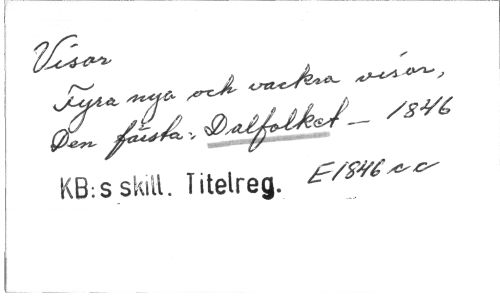 Visor
Fyra nya och vackra visor,
Den första: Dalfolket — 1846
KB:s skill. Titelreg. E1846 c c